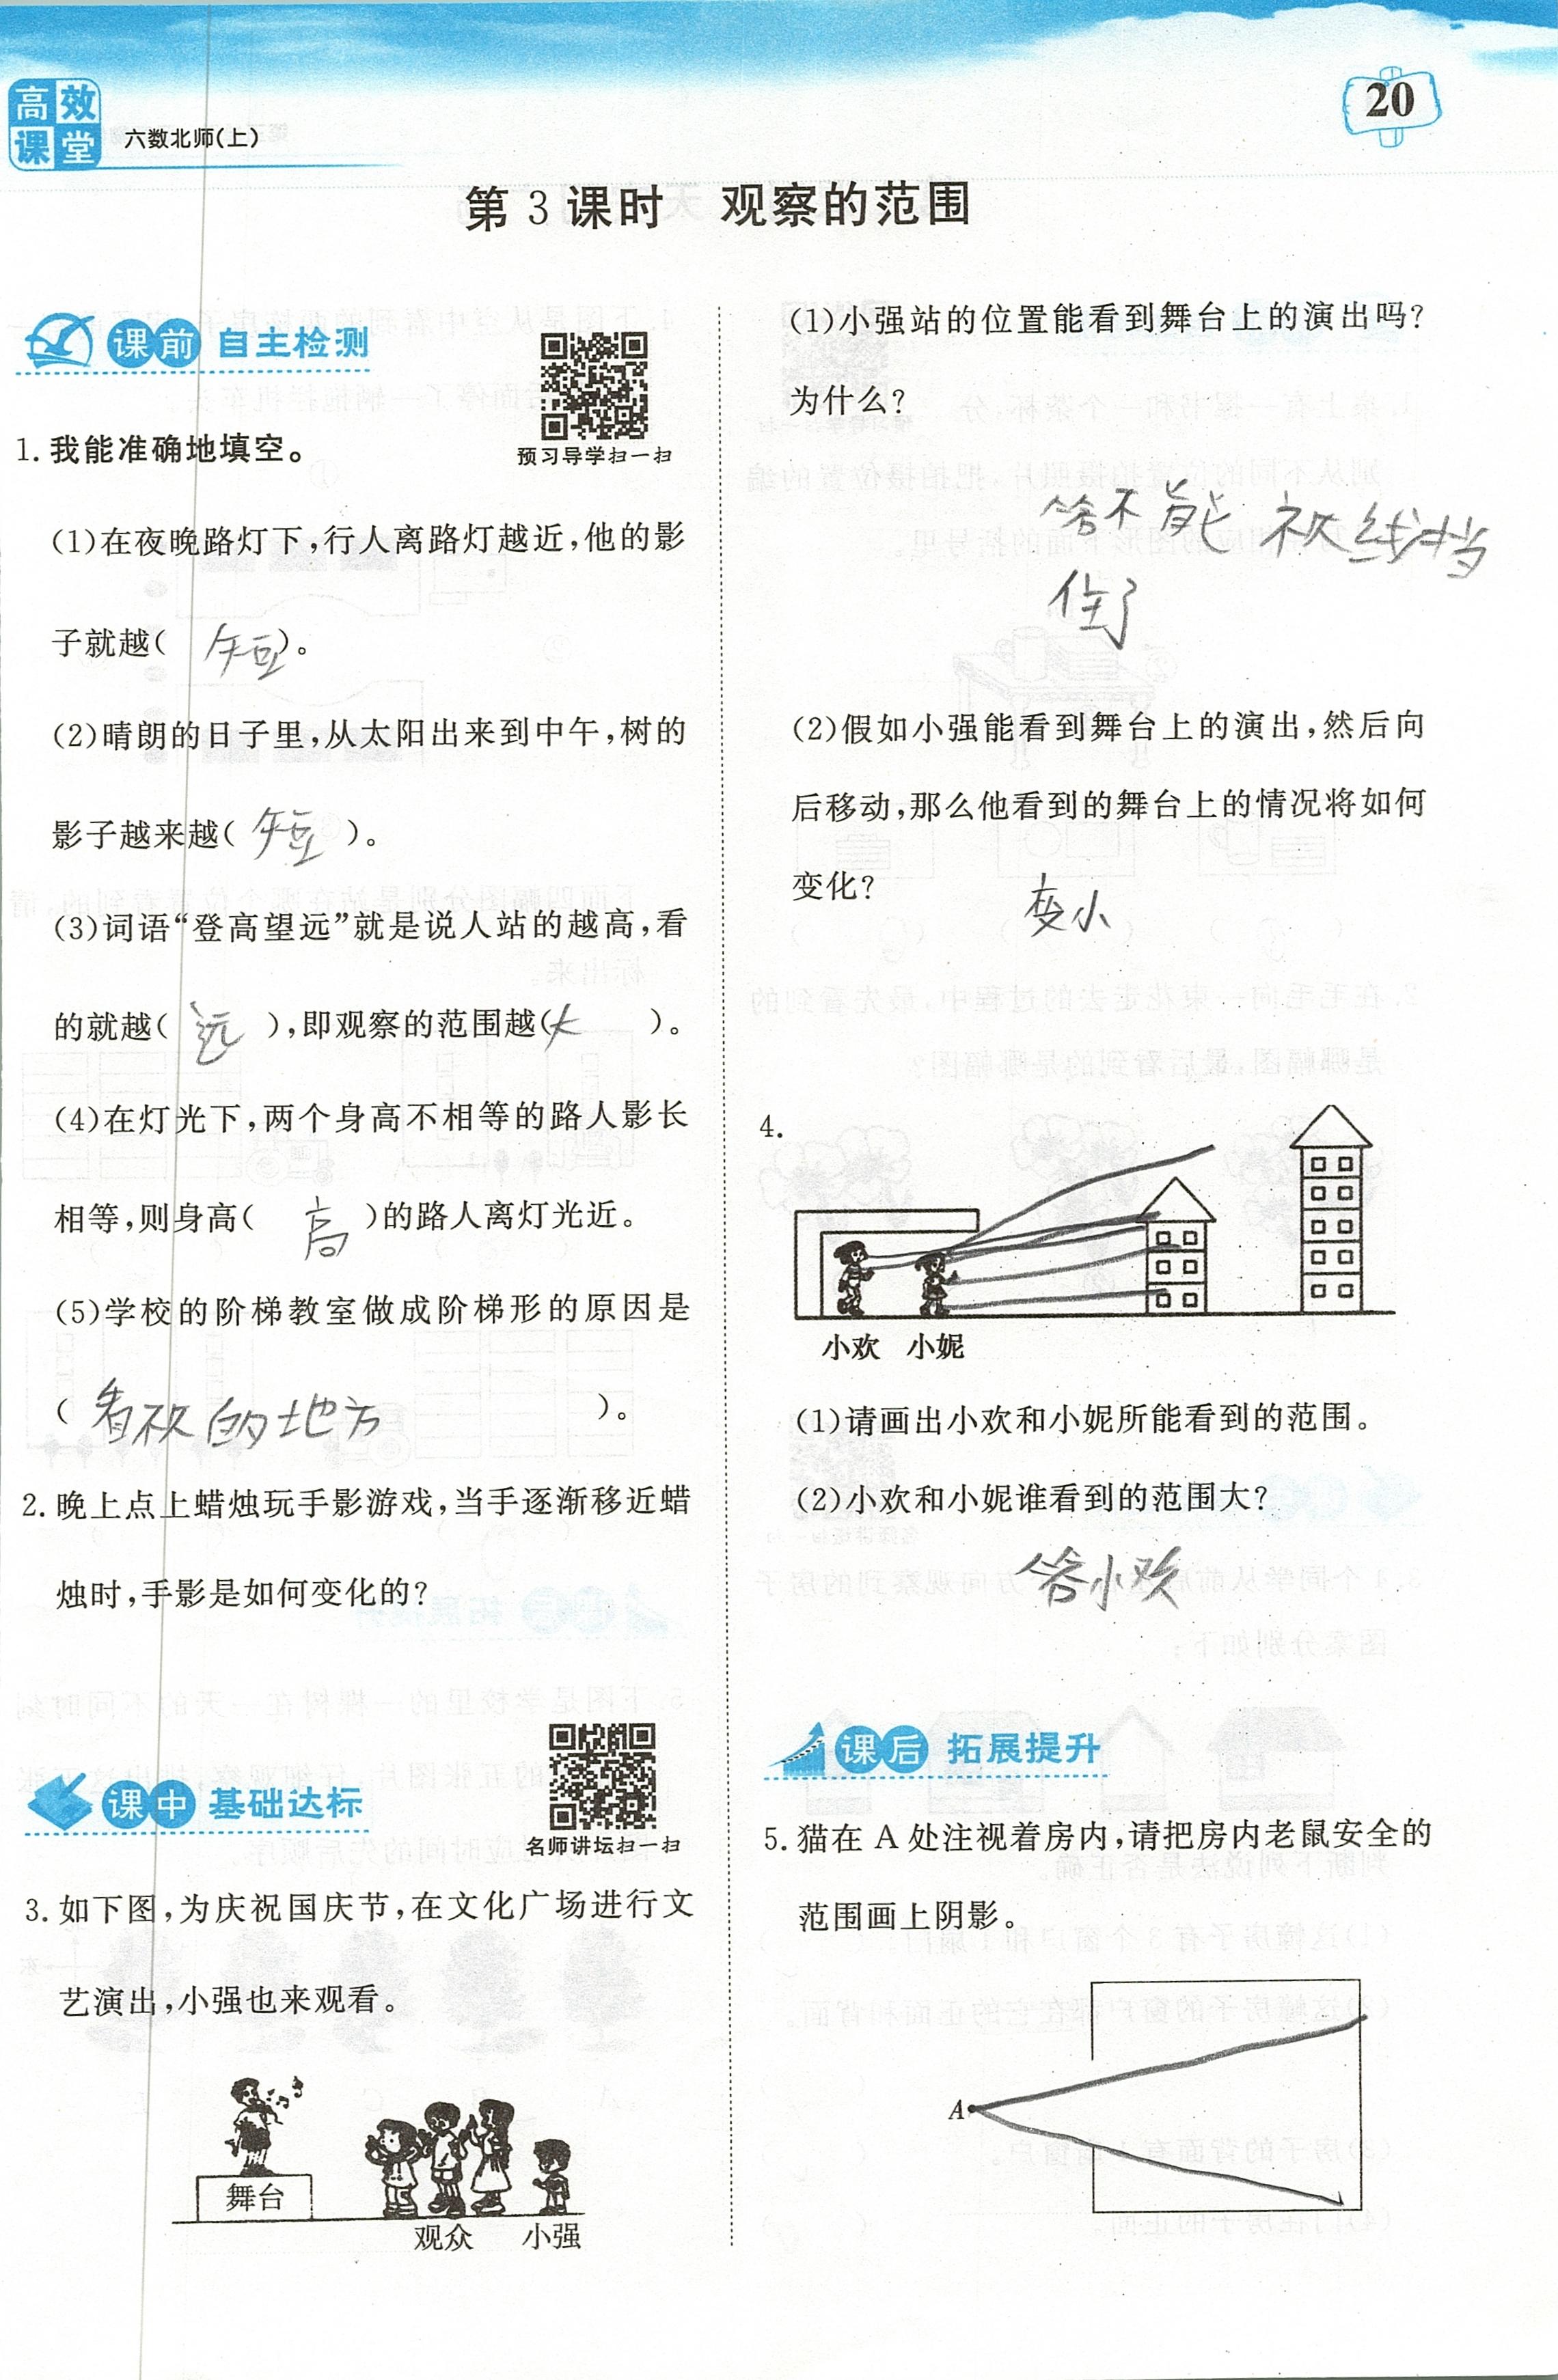 高效
课堂
六数北师(上)
20
第3课时 观察的范围
课前 自主检测
预习导学扫一扫
1. 我能准确地填空。
(1)在夜晚路灯下,行人离路灯越近,他的影
子就越( 短 )。
(2)晴朗的日子里,从太阳出来到中午,树的
影子越来越( 短 )。
(3)词语“登高望远”就是说人站的越高,看
的就越( 远 ),即观察的范围越( 大 )。
(4)在灯光下,两个身高不相等的路人影长
相等,则身高( 高 )的路人离灯光近。
(5)学校的阶梯教室做成阶梯形的原因是
( 看 的地方 )。
2. 晚上点上蜡烛玩手影游戏,当手逐渐移近蜡
烛时,手影是如何变化的?
课中 基础达标
名师讲坛扫一扫
3. 如下图,为庆祝国庆节,在文化广场进行文
艺演出,小强也来观看。
舞台
观众 小强
(1)小强站的位置能看到舞台上的演出吗?
为什么?
答不能 线挡
住了
(2)假如小强能看到舞台上的演出,然后向
后移动,那么他看到的舞台上的情况将如何
变化?
变小
4.
小欢 小妮
(1)请画出小欢和小妮所能看到的范围。
(2)小欢和小妮谁看到的范围大?
答小欢
课后 拓展提升
5. 猫在 A 处注视着房内,请把房内老鼠安全的
范围画上阴影。
A